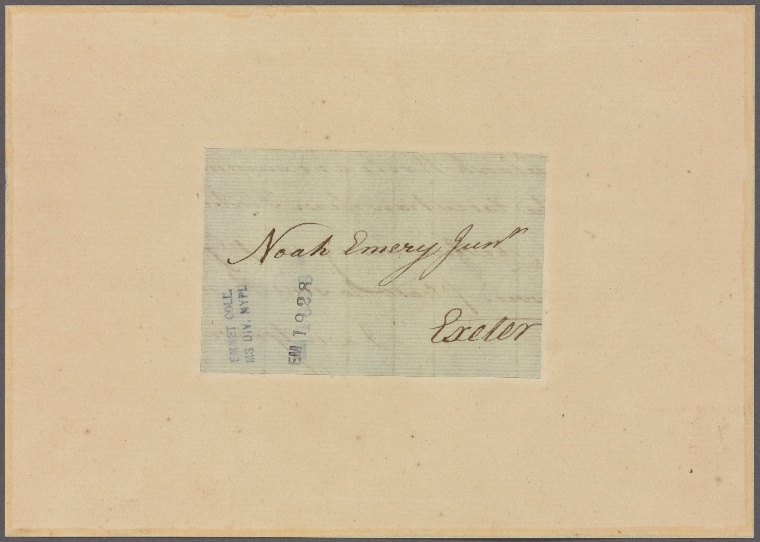 Noah Emery Junʳ
Exeter
EMMET COLL.
MS DIV. NYPL
EM. 1928